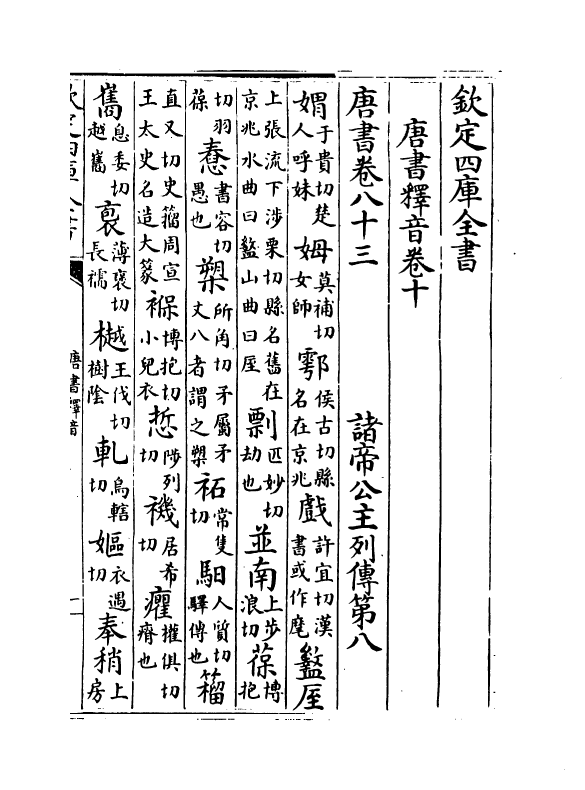 欽定四庫全書
唐書釋音卷十
唐書卷八十三 諸帝公主列傳第八
媦于貴切楚人呼妹 姆莫補切女師 鄠侯古切縣名在京兆 戲許宜切漢書或作麾 盩厔
上張流下涉栗切縣名舊在京兆水曲曰盩山曲曰厔 剽匹妙切劫也 並南上步浪切 葆博抱
切羽葆 惷書容切愚也 槊所角切矛屬矛丈八者謂之槊 祏常隻切 馹人質切驛傳也 籀
直又切史籀周宣王太史名造大篆 褓博抱切小兒衣 悊陟列切 禨居希切 癯權俱切瘠也
巂息委切越巂 裒薄襃切長襦 樾王伐切樹陰 軋烏轄切 嫗衣遇切 奉稍上房
唐書釋音
一